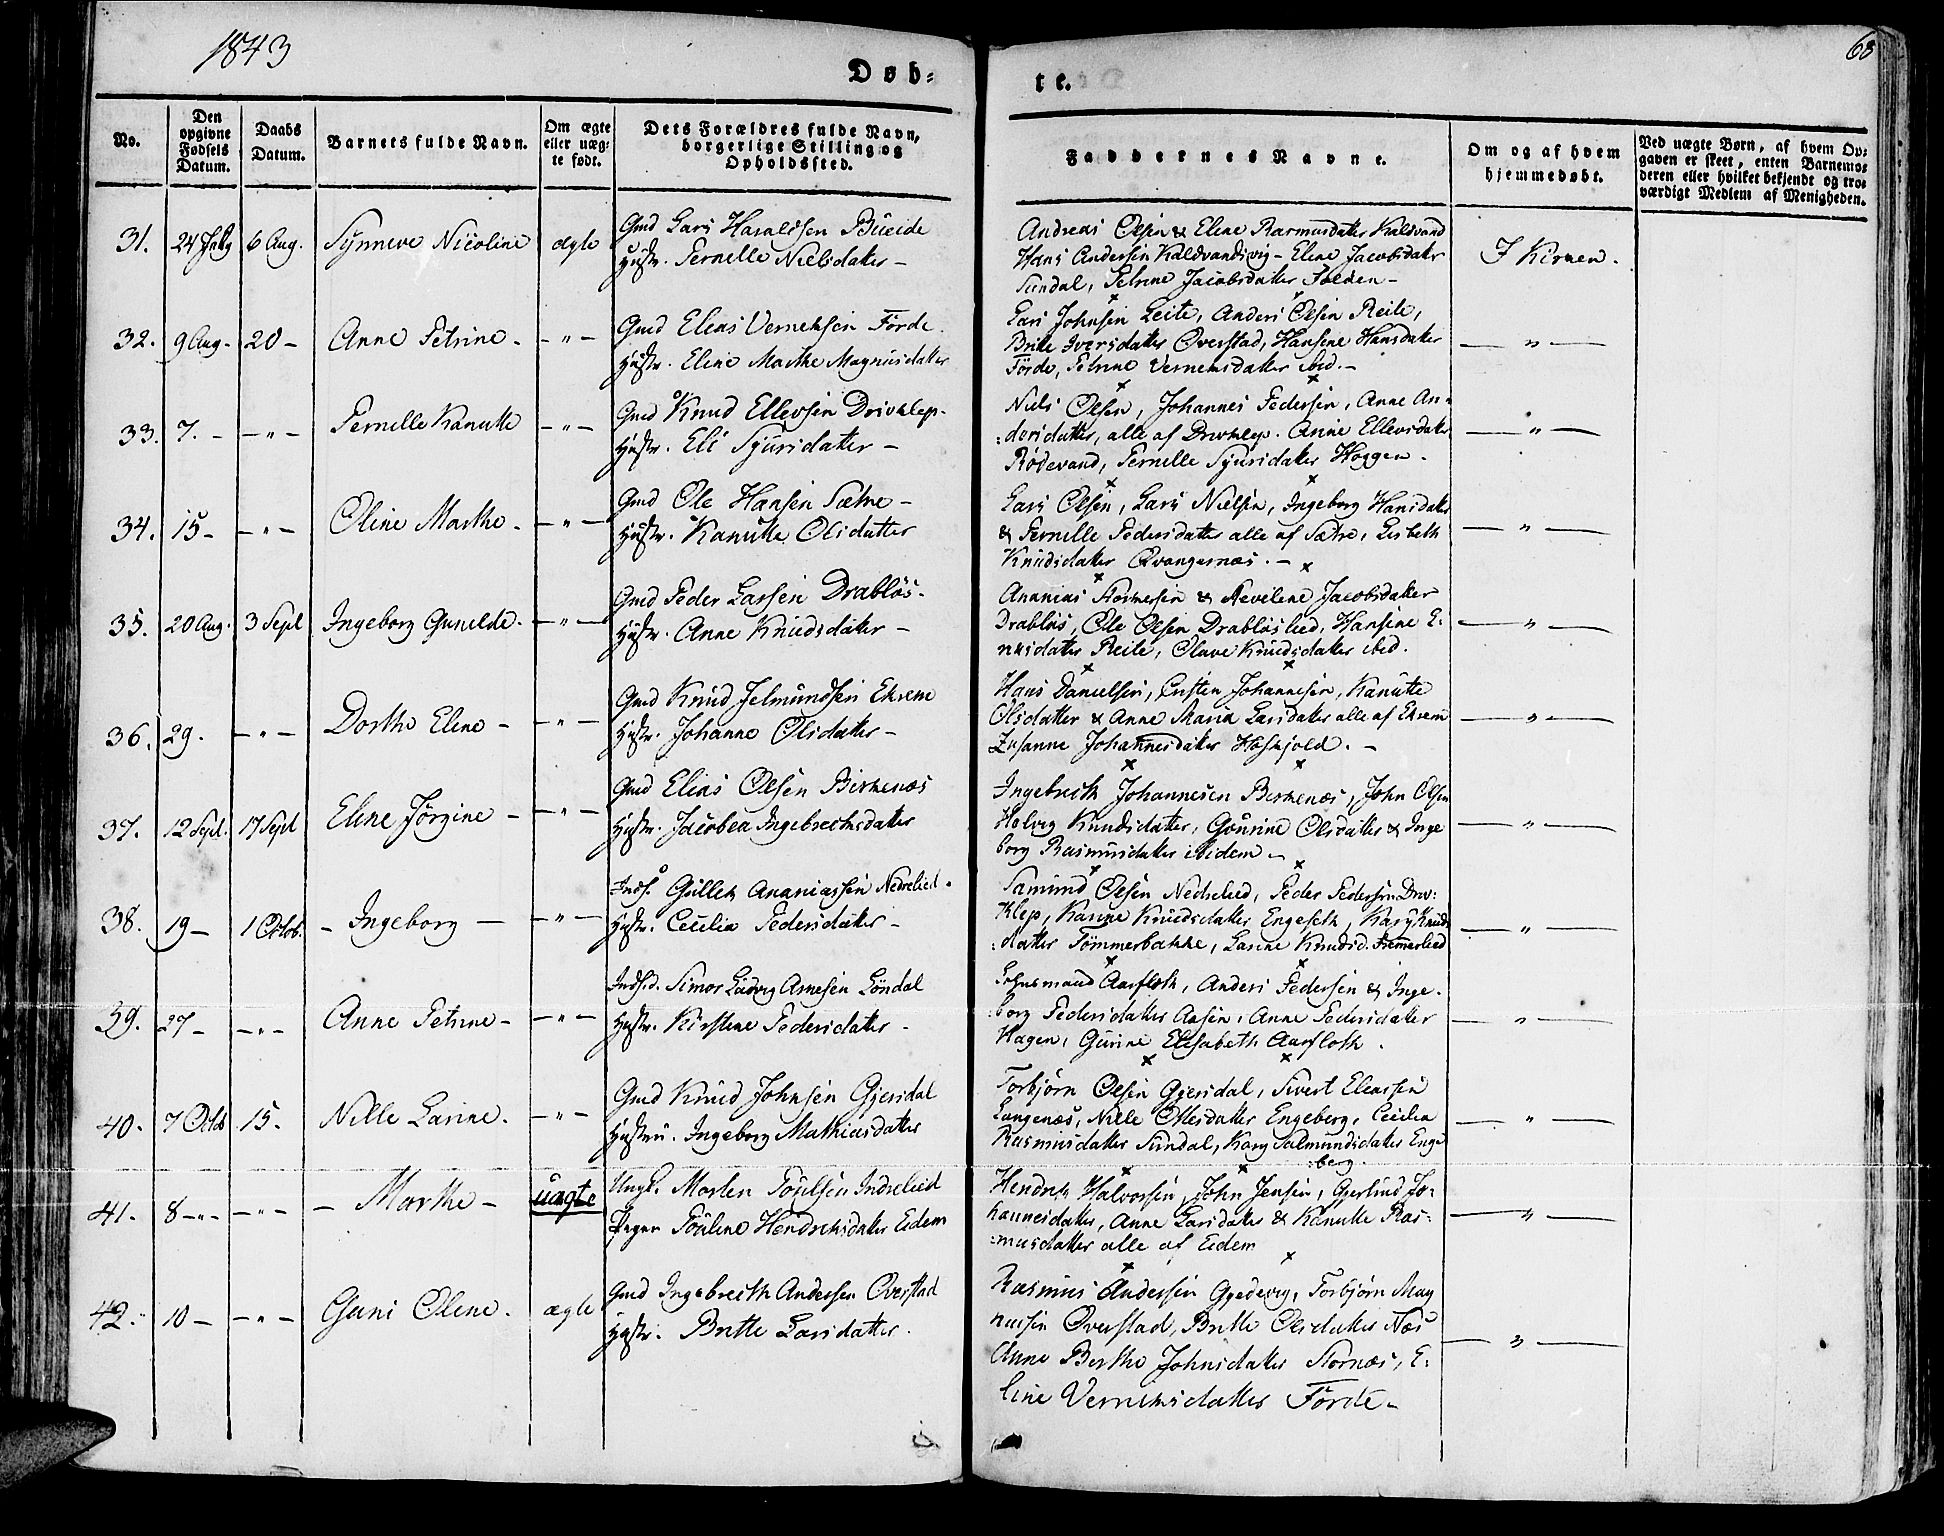 1843
Døb-
te.
68
No.
Den opgivne Fødsels Datum.
Daabs Datum.
Barnets fulde Navn.
Om ægte eller uæg-te født.
Dets Forældres fulde Navn, borgerlige Stilling og Opholdssted.
Faddernes Navne.
Om og af hvem hjemmedøbt.
Ved uægte Børn, af hvem Op-gaven er skeet, enten Barnemo-deren eller hvilket bekjendt og tro-værdigt Medlem af Menigheden.
31. 24 July 6 Aug. Synneve Nicoline ægte Gmd Lars Haraldsen Büeide
Hustr. Pernelle Nielsdatter -
Andreas Olsen & Eline Rasmusdatter Kaldvand
Hans Andersen Kaldvandsvig - Eline Jacobsdatter
Sundal, Petrine Jacobsdatter Folden -
I Kirken.
32. 9 Aug - 20 - Anne Petrine - - " - Gmd Elias Verneksen Förde.
Hustr. Eline Marthe Magnusdatter
Lars Johnsen Leite, Anders Olsen Reite,
Brite Iversdatter Overstad, Hansine Hansdatter
Förde, Petrine Verneksdatter ibid. -
- " -
33. 7. - - " - Pernelle Kanutte - " - Gmd Knud Ellevsen Drivklep -
Hustr. Eli Sjursdatter -
Niels Olsen, Johannes Pedersen, Anne An-
:dersdatter, alle af Drivklep. Anne Ellevsdatter
Rödevand, Pernelle Sjursdatter Haggen -
- " -
34. 15 - - " - Oline Marthe - - " - Gmd Ole Hansen Sætre -
Hustr. Kanutte Olsdatter
Lars Olsen, Lars Nielsen, Ingeborg Hansdatter
& Pernelle Pedersdatter alle af Sætre, Lisbeth
Knudsdatter Qvangernæs. -
- " -
35. 20 Aug. 3 Sept Ingeborg Gunelde. - " - Gmd Peder Larsen Drablös -
Hustr. Anne Knudsdatter -
Ananias & Sevelene Jacobsdatter
Drablös, Ole Olsen Drabloslied, Hansine E-
Reite, Olave Knudsdatter ibid.
- " -
36. 29. - " - Dorthe Eline - - " - Gmd Knud Jelmundsen Ekrem
Hustr. Johanne Olsdatter -
Hans Danielsen, Johannesen, Kanutte
Olsdatter & Anne Maria Larsdatter alle af Ekrem
Zusanne Johannesdatter Hoskjold. -
- " -
37. 12 Sept. 17 Sept Eline Jörgine - - " - Gmd Elias Olsen Birkenæs
Hustr. Jacobea Ingebrechtsdatter
Ingebreth Johannesen Birkenæs, John Olsen
Helvig Knudsdatter, Gourine Olsdatter & Inge
borg Rasmusdatter ibidem -
- " -
38. 19 - 1 Octob. - Ingeborg - - " - Inds. Gullek Ananiassen Nedrelied -
Hustr. Cecilia Pedersdatter -
Samund Olsen Nedrelied, Peder Pedersen Driv-
klep, Karine Knudsdatter Engeseth, Kary Knuds
:datter Tömmerbakke, Larine Knudsd.
- " -
39. 27 - - " - Anne Petrine - - " - Indsid. Simon Ludvig Arnesen Löndal
Hustr. Kirstine Pedersdatter -
Aarfloth, Anders Pedersen & Inge-
:borg Pedersdatter Aasen, Anne Pedersdatter
Hagen, Gurine Elisabeth Aarfloth.
- " -
40. 7 Octob 15. Nille Larine. - " - Gmd Knud Johnsen Gjersdal
Hustru. Ingeborg Mathiasdatter
Torbjörn Olsen Gjersdal, Sivert Eliassen
Langenæs, Nille Ottesdatter Engeberg, Cecilia
Rasmusdatter Sundal, Kary Salmundsdatter Enge
:berg.
- " -
41. 8 - " - - " - - Marthe - uægte Ungk. Morten Poulsen Indrelied
Pigen Pouline Hendriksdatter Eidem
Hendrik Halvorsen, John Jensen, Gjerlind Jo-
hannesdatter, Anne Larsdatter & Kanutte Ras-
:musdatter alle af Eidem
- " -
42. 10 - - " - Guni Oline. ægte Gmd Ingebreth Andersen Overstad
Hustr. Britte Larsdatter.
Rasmus Andersen Gjedevig, Torbjörn Mag
nusen Overstad, Britte Olsdatter Næs
Anne Berthe Johnsdatter Stornæs, E-
line Verneksdatter Förde -
- " -